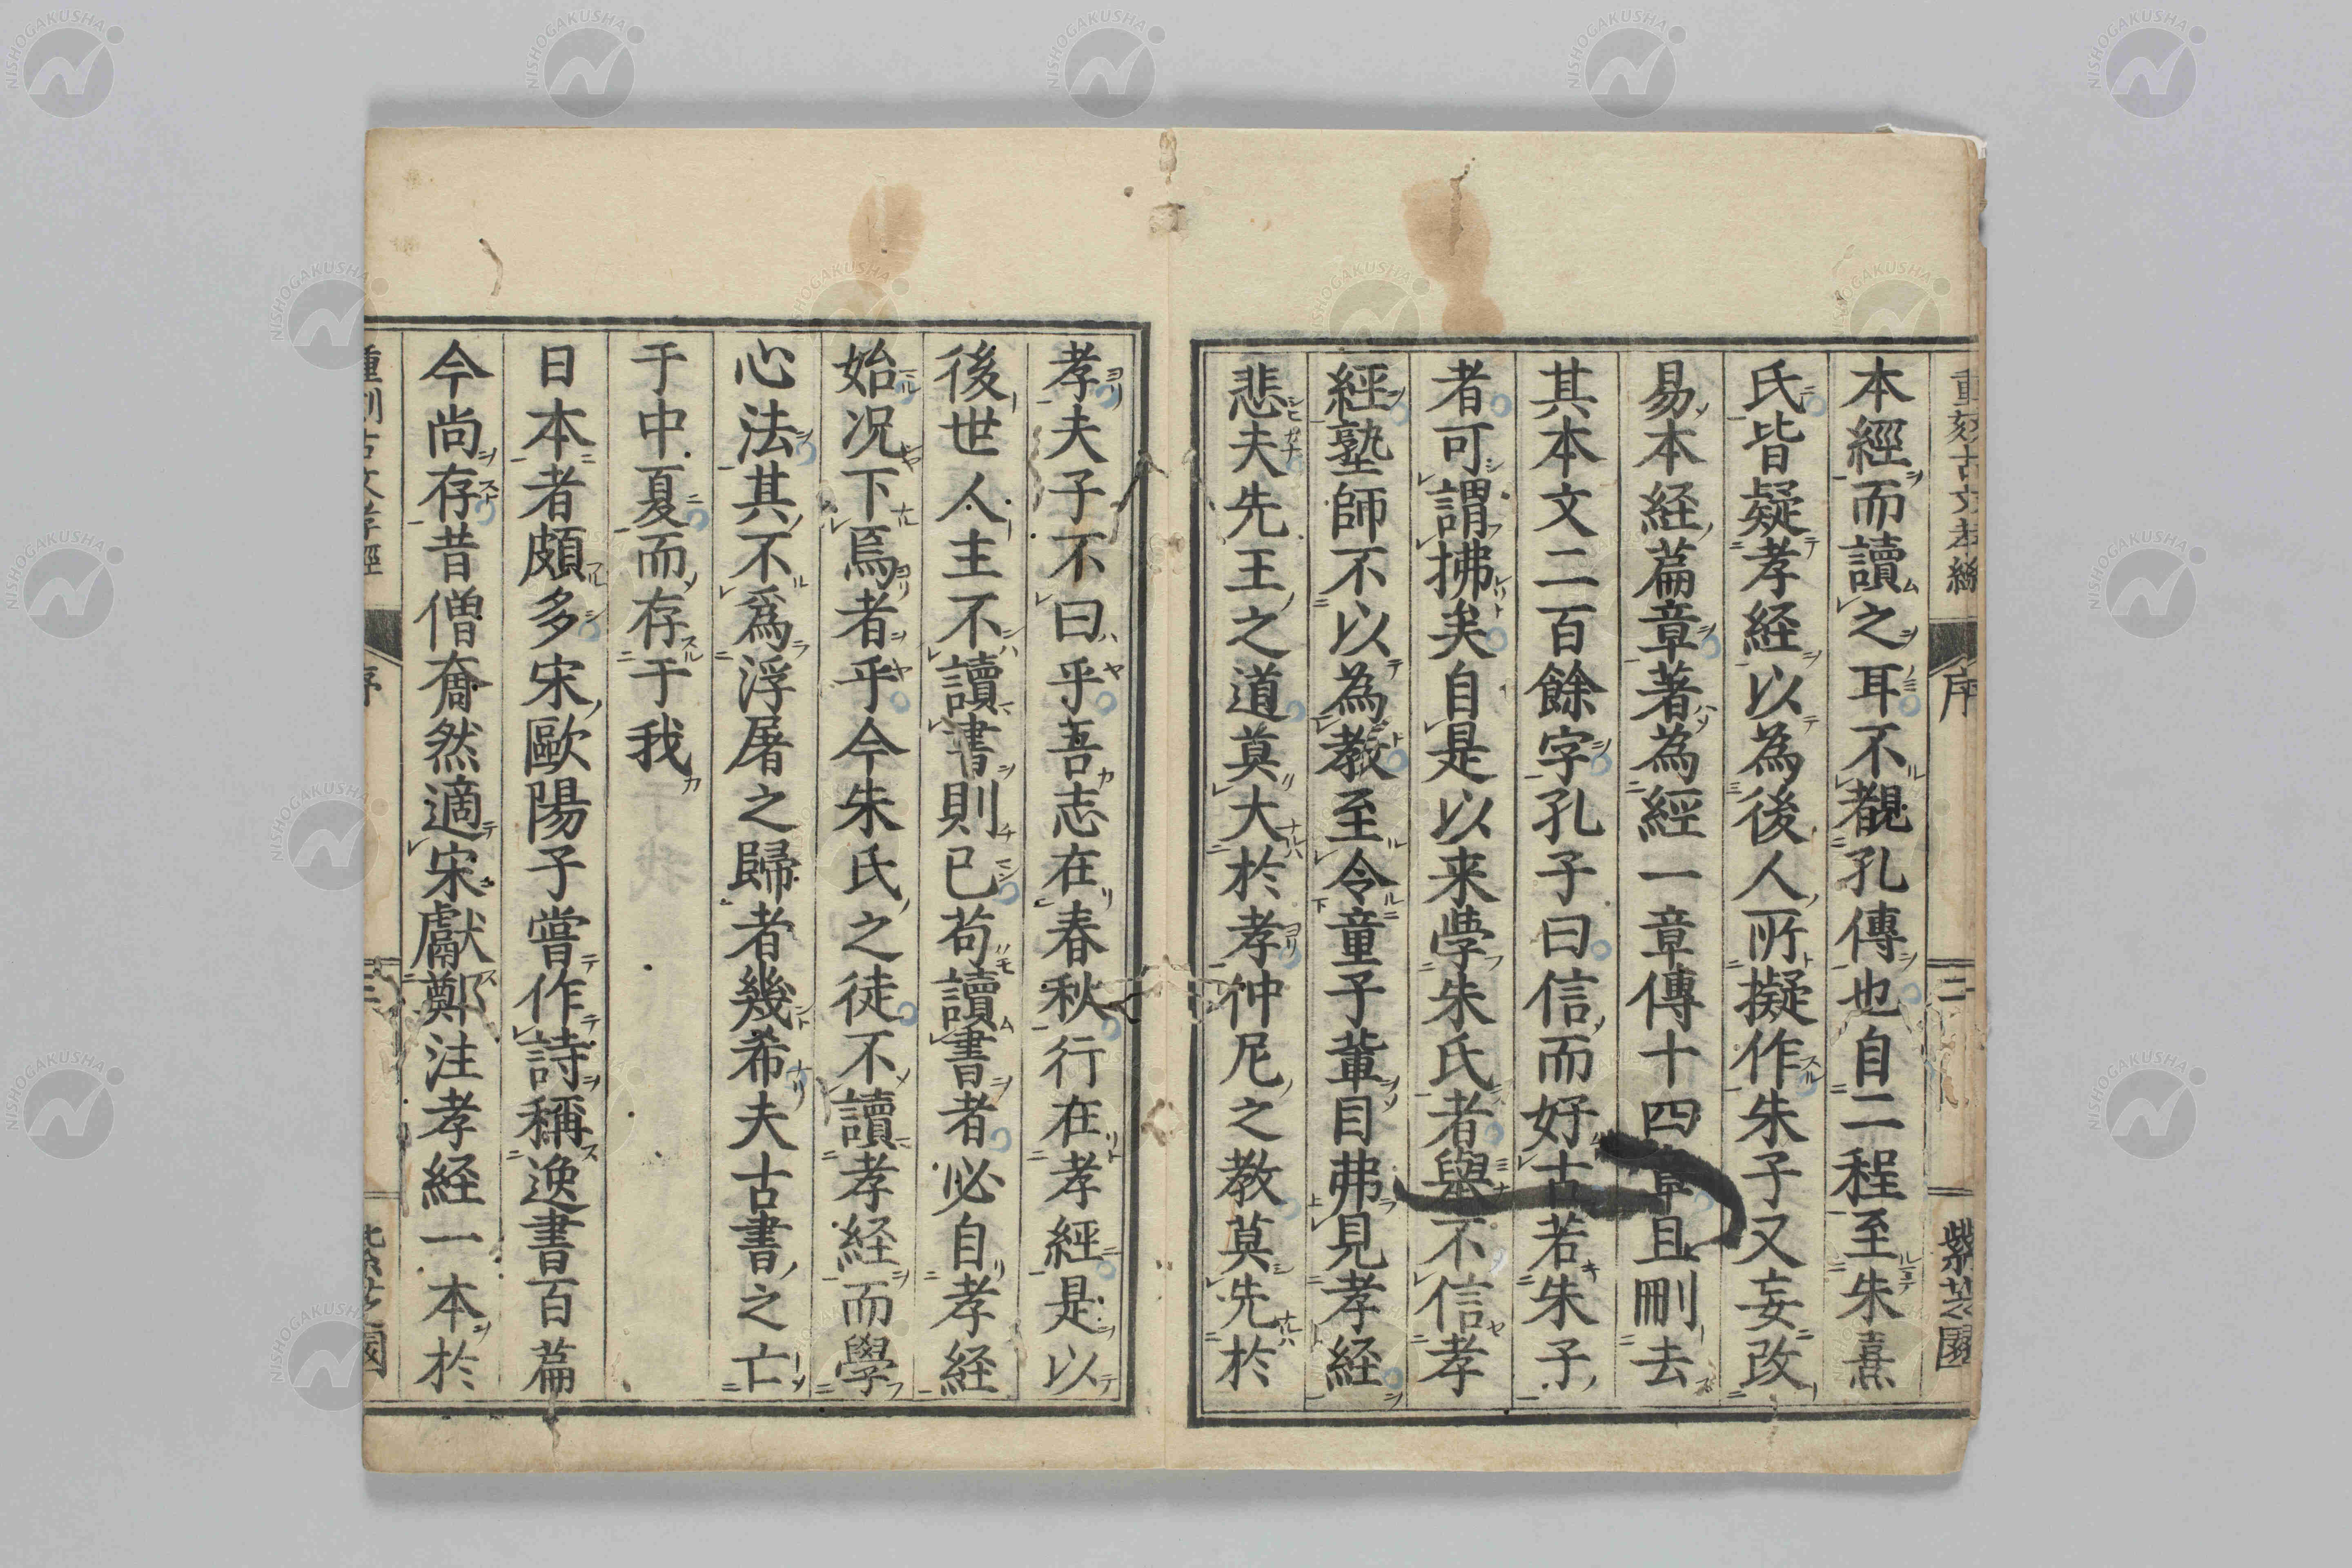 重刻古文孝經 序 二 紫芝園
本經而讀之耳不覩孔傳也自二程至朱熹
氏皆疑孝経以為後人所擬作朱子又妄改
易本経篇章著為經一章傳十四章且刪去
其本文二百餘字孔子曰信而好古若朱子
者可謂拂矣自是以来學朱氏者舉不信孝
經塾師不以為教至令童子輩目弗見孝経
悲夫先王之道莫大於孝仲尼之教莫先於
孝夫子不曰乎吾志在春秋行在孝經是以
後世人主不讀書則已苟讀書者必自孝経
始况下焉者乎今朱氏之徒不讀孝経而學
心法其不爲浮屠之歸者幾希夫古書之亡
于中夏而存于我
日本者頗多宋歐陽子嘗作詩稱逸書百篇
今尚存昔僧奝然適宋獻鄭注孝経一本於
NISHOGAKUSHA